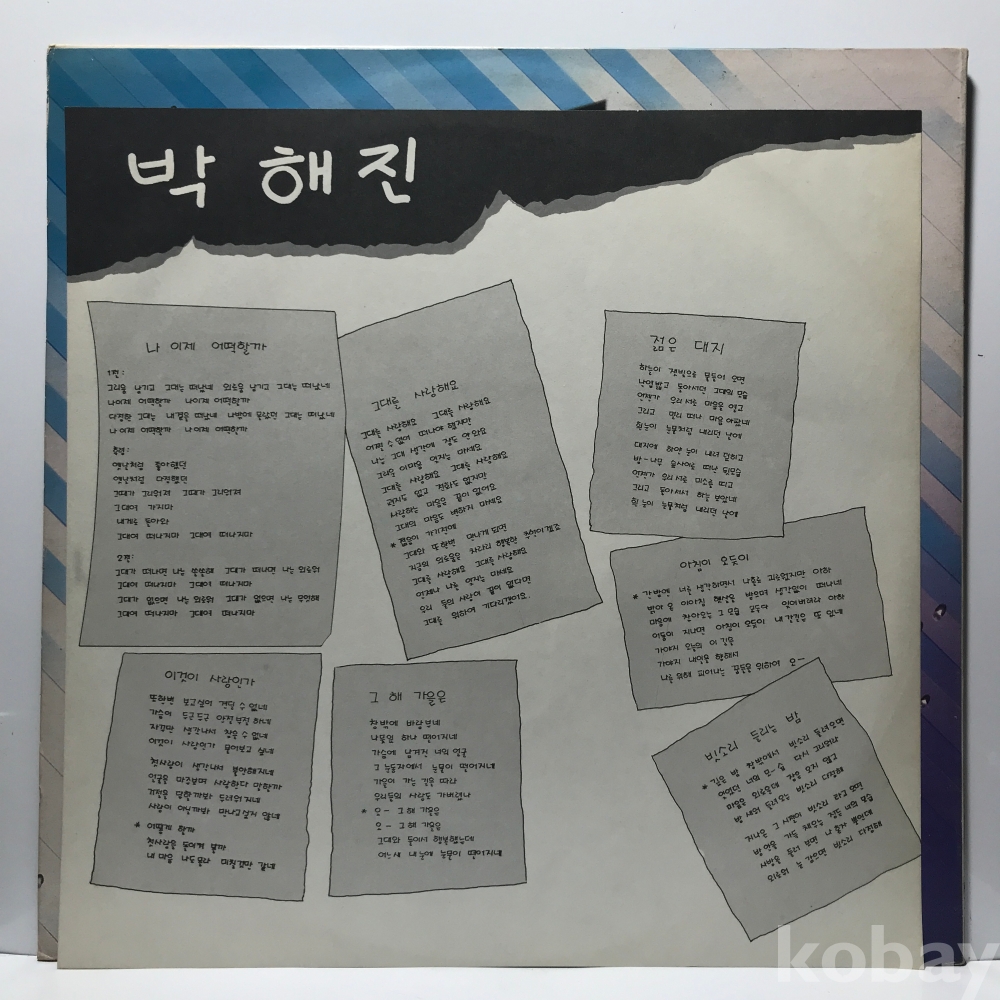 박해진
나 이제 어떡할까
1편:
그리움 남기고 그대는 떠났네 외로움 남기고 그대는 떠났네
나 이제 어떡할까 나 이제 어떡할까
다정한 그대는 내 곁을 떠났네 나만에 울렸던 그대는 떠났네
나 이제 어떡할까 나 이제 어떡할까
후렴:
옛날처럼 좋아했던
옛날처럼 다정했던
그때가 그리워져 그때가 그리워져
그대여 가지마
내게로 돌아와
그대여 떠나지마 그대여 떠나지마
2편:
그대가 떠나면 나는 쓸쓸해 그대가 떠나면 나는 외로워
그대여 떠나지마 그대여 떠나지마
그대가 없으면 나는 외로워 그대가 없으면 나는 우울해
그대여 떠나지마 그대여 떠나지마
그대를 사랑해요
그대를 사랑해요 그대를 사랑해요
어쩔 수 없이 떠나야 했지만
나는 그대 생각에 잠도 안 와요
그리운 이 마음 잊지는 마세요
그대를 사랑해요 그대를 사랑해요
편지도 없고 전화도 없지만
사랑하는 마음은 끝이 없어요
그대의 마음도 변하지 마세요
* 젊음이 가기 전에
그대와 또 한번 만나게 되면
지금의 외로움은 차라리 행복한 추억이겠죠
그대를 사랑해요 그대를 사랑해요
언제나 나를 잊지는 마세요
우리 둘의 사랑이 끝이 없다면
그대를 위하여 기다리겠어요.
젊은 대지
하늘이 잿빛으로 물들어 오면
낙엽 밟고 돌아서던 그대의 모습
언젠가 우리 서로 마음을 열고
그리고 멀리 떠나 마음 아팠네
흰 눈이 눈물처럼 내리던 날에
대지에 하얀 눈이 내려 덮이고
밤-나무 숲 사이로 떠난 뒷모습
언젠가 우리 서로 미소를 띠고
그리고 돌아서서 하늘 보았네
흰 눈이 눈물처럼 내리던 날에
아침이 오듯이
* 간밤엔 너를 생각하면서 나홀로 괴로웠지만 아하
밝아 올 이 아침 햇살을 받으며 생각없이 떠나네
마음에 찾아오는 그 모습 모두다 잊어버려라 아하
이 밤이 지나면 아침이 오듯이 내 갈 길은 또 있네
가야지 오늘의 이 길을
가야지 내일을 향해서
나를 위해 피어나는 꿈들을 위하여 오-
이것이 사랑인가
또 한번 보고싶어 견딜 수 없네
가슴이 두근두근 안절부절 하네
자꾸만 생각나서 참을 수 없네
이것이 사랑인가 물어보고 싶네
첫사랑이 생각나서 불안해지네
얼굴을 마주보며 사랑한다 말할까
거절을 당할까봐 두려워지네
사랑이 아닐까봐 만나고 싶지 않네
* 어떻게 할까
첫사랑을 돌이켜 볼까
내 마음 나도 몰라 미칠것만 같네
그 해 가을은
창 밖에 바람 부네
나뭇잎 하나 떨어지네
가슴에 남겨진 너의 얼굴
그 눈동자에서 눈물이 떨어지네
가을이 가는 길을 따라
우리들의 사랑도 가버렸나
* 음- 그 해 가을은
음- 그 해 가을은
그대와 둘이서 행복했는데
어느새 내 눈에 눈물이 떨어지네
빗소리 들리는 밤
* 깊은 밤 창밖에서 빗소리 들려오면
잊었던 너의 모-습 다시 그리워라
마음은 외로운데 잠은 오지 않고
밤 새워 들려오는 빗소리 다정해
지나온 그 시절이 빗소리 타고 오면
방안을 가득 채우는 젖은 너의 모습
사방을 둘러 보면 나 홀가 뿐인데
외로워 눈 감으면 빗소리 다정해
kobay